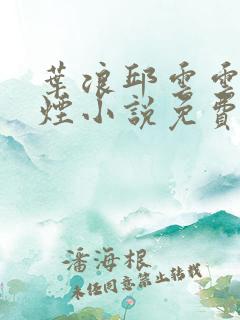 葉浪邱雲雲
煙小說免費
潘海根
未經同意禁止轉載